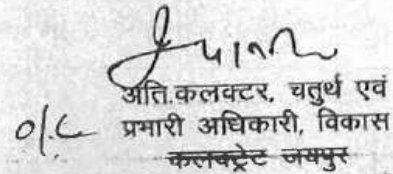 अति.कलक्टर, चतुर्थ एवं
O/C प्रभारी अधिकारी, विकास
कलक्ट्रेट जयपुर